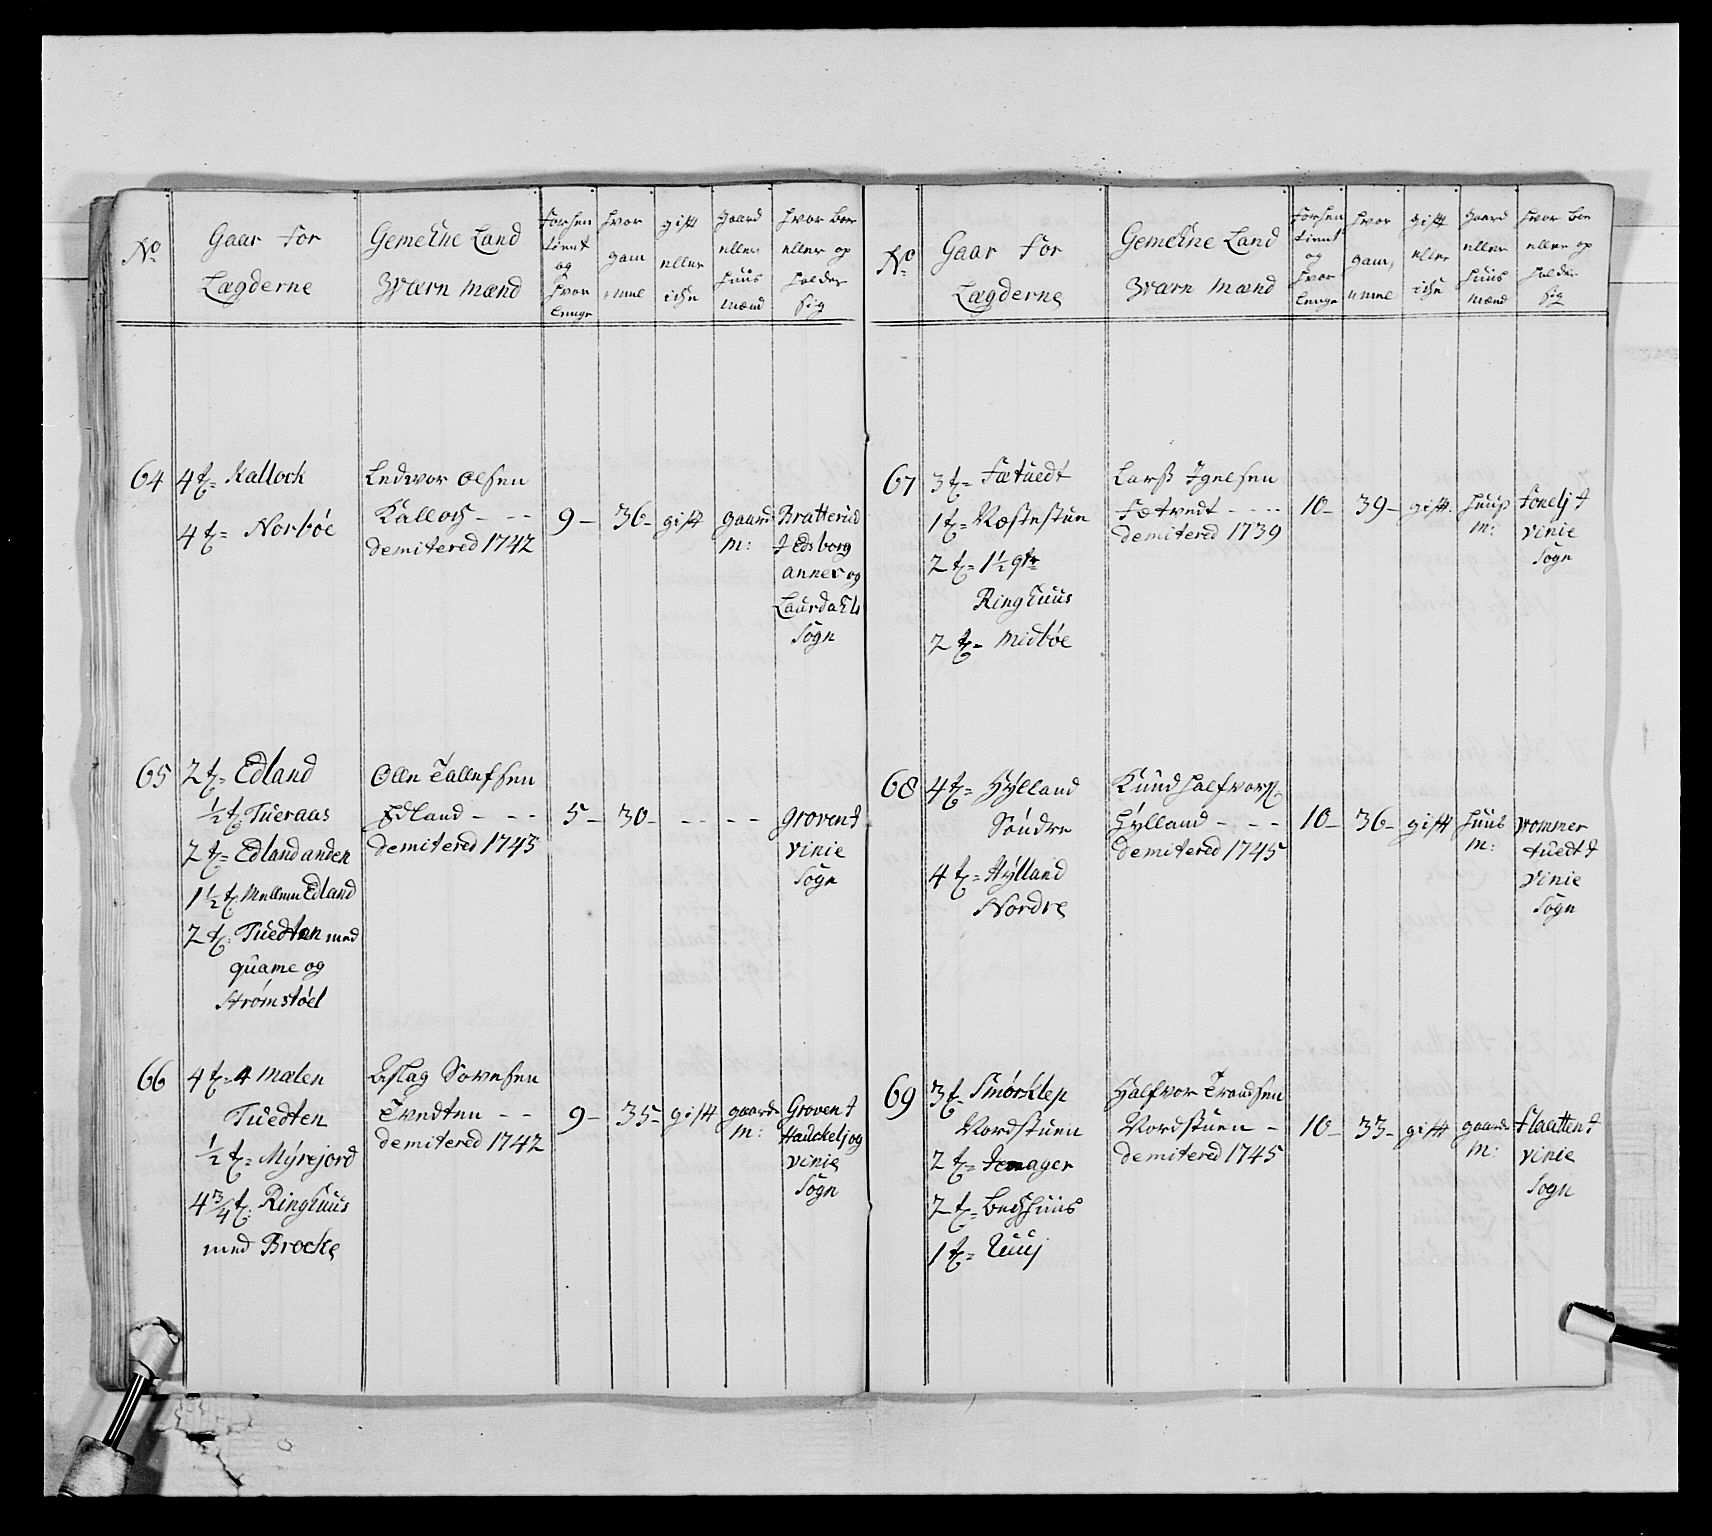 No
Gaar for
Lægderne
Gemeene Land
Wærn mænd
forhen
tient
og
hvor
lenge
hvor
gam
mel
gift
eller
icke
gaard
eller
huus
mænd
hvor boe
eller op
holder
sig
64
4 t= Kallock
4 t= Norbøe
Ledvor Olsen
Kalloch - - -
demitered 1742
9 -
36 -
gift
gaard
m:
Bratterud
i Edsborg
annex og
Laurdahls
Sogn
65
2 t= Edland
½ t: Tueraas
2 t= Edland anden
1½ t: Mellem Edland
2 t: Tuedten med
quame og
Strømstøel
Olle Tallefsen
Edland - - -
demitered 1743
5 -
30 -
- -
- -
Groven i
Vinie
Sogn
66
4 t= 4 mælen
Tuedten
½ t= Myrejord
4¾ t: Ringhuus
med Brocke
Aslag Sovnsen
Tvedten - -
demitered 1742
9 -
35 -
gift
gaard
m:
Groven i
Hauckelj og
Vinie
Sogn
No
Gaar for
Lægderne
Gemeene Land
Wærn mænd
forhen
tient
og
hvor
lenge
hvor
gam,
mel
gift
eller
icke
gaard
eller
huus
mænd
hvor boe
eller op
holder
sig
67
3 t= Fætuedt
1 t= Næstestuen
2 t= 1½ qtr
Ringhuus
2 t= Midbøe
Larss Igelsen
Fætvedt - - -
demitered 1739
10 -
39 -
gift.
huus
m:
Fonelj i
Vinie
Sogn
68
4 t= Hylland
Søndre
4 t= Hylland
Nordre
Knud Halfvors:
Hylland - - -
demitered 1745
10 -
36 -
gift
huus
m:
Vommer
tuedt i
Vinie
Sogn
69
3 t= Smørklep
Nordstuen
2 t= Jemager
2 t= Bechhuus
1 t= Ruuj
Halfvor Trondsen
Nordstuen -
demitered 1745
10 -
33 -
gift
gaard
m:
Flaatten i
Vinie
Sogn